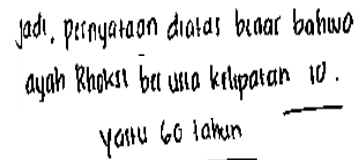 Jadi, pernyataan diatas benar bahwa
ayah Rhoksi ber usia kelipatan 10.
yaitu 60 tahun